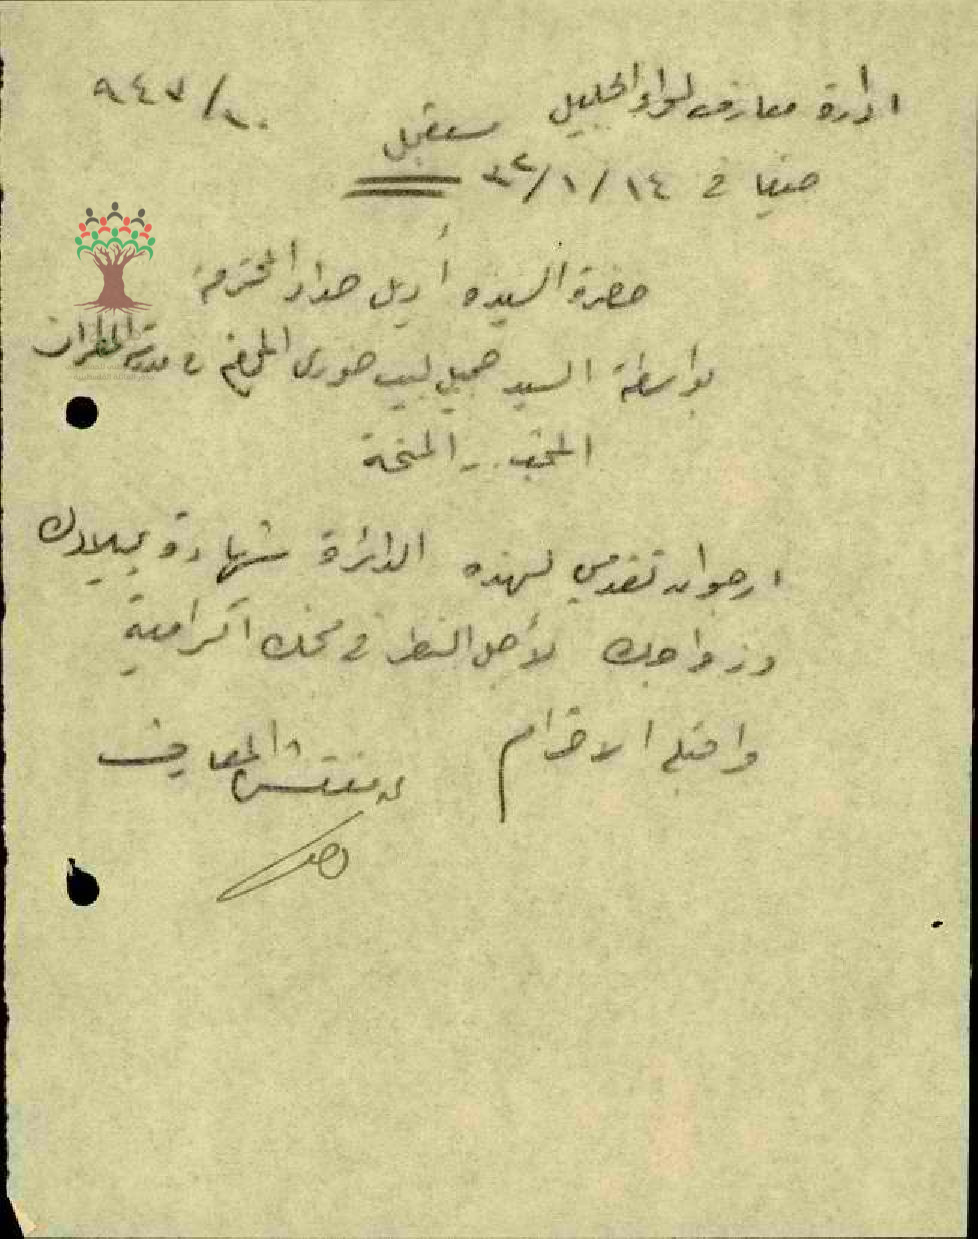 ادارة معارف لواء الجليل
٩٤٧/٢٠
مستعجل
حيفا في ٤٢/١/١٤
حضرة السيدة أديل حداد المحترمة
بواسطة السيد جميل لبيب خوري المعلم في مدرسة المطران
المنحة
ارجو ان تقدمي لهذه الدائرة شهادة ميلادك
وزواجك لأجل النظر في منحك اكرامية
واقبلي الاحترام
مفتش المعارف